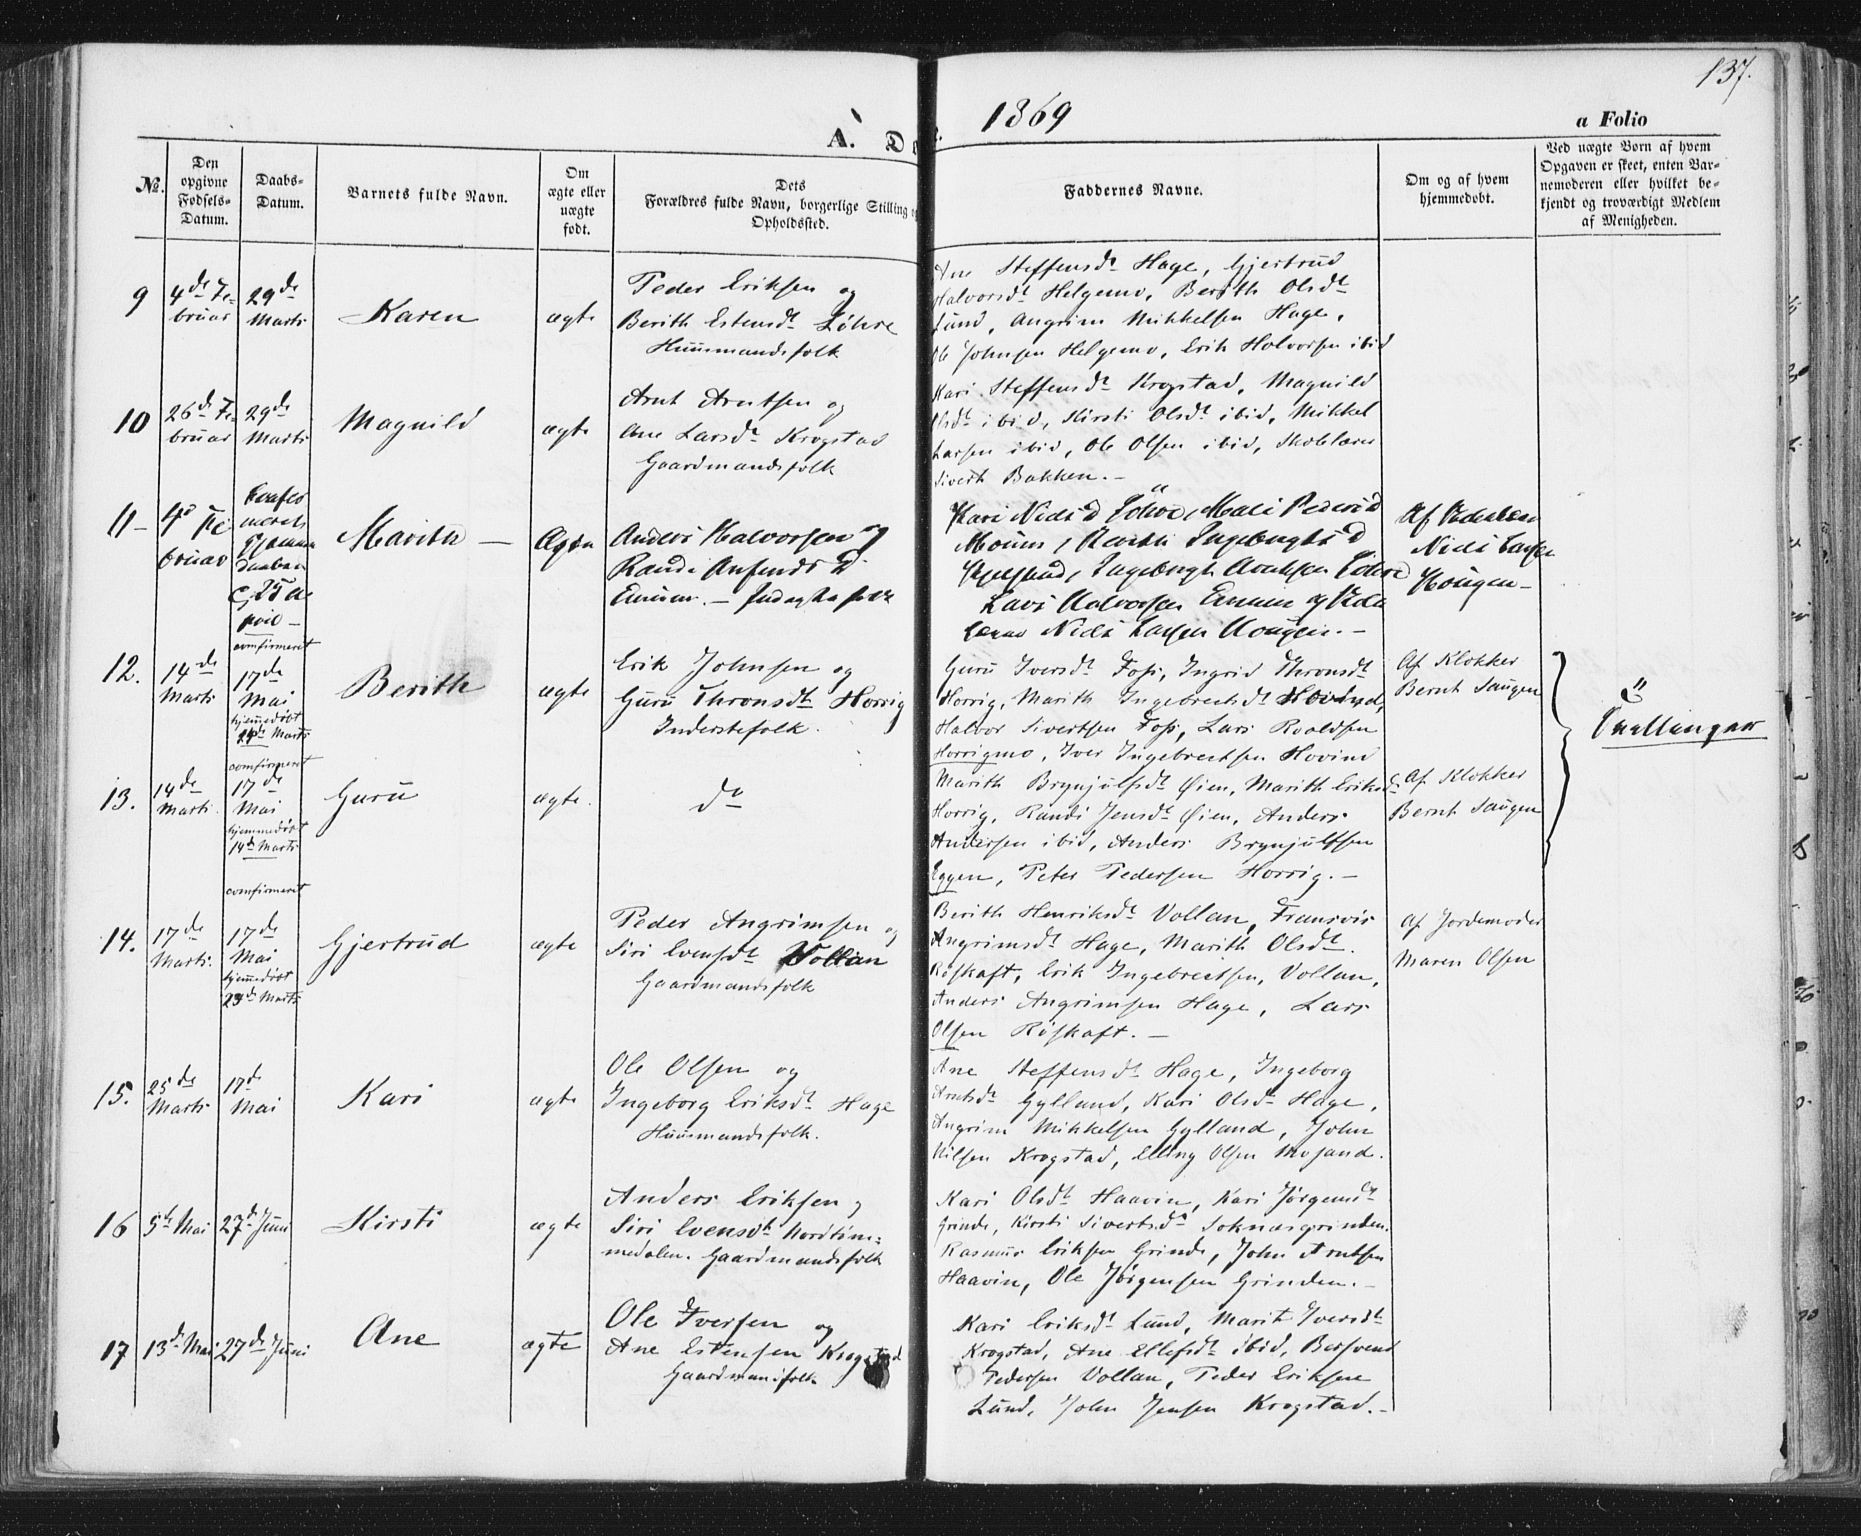 137.
1869
A. D
a Folio
No.
Den opgivne Fødsels-Datum.
Daabs-Datum.
Barnets fulde Navn.
Om ægte eller uægte født.
Dets Forældres fulde Navn, borgerlige Stilling og Opholdssted.
Faddernes Navne.
Om og af hvem hjemmedøbt.
Ved uægte Børn af hvem Opgaven er skeet, enten Barnemoderen eller hvilket bekjendt og troværdigt Medlem af Menigheden.
9
4de Februar
29de Marts
Karen
ægte
Peder Eriksen og
Berith Estensdt Løhre
Huusmandsfolk
Ane Steffensdt Hage, Gjertrud
Halvorsdt Helgemo, Berith Olsdt
Lund, Angrim Mikkelsen Hage,
Ole Johnsen Helgemo, Erik Halvorsen ibid
10
26de Februar
29de Marts
Magnild
ægte
Arnt Arntsen og
Ane Larsdt Krogstad
Gaardmandsfolk
Kari Steffensdt Krogstad, Magnild
Olsdt ibid, Kirsti Olsdt ibid, Mikkel
Larsen ibid, Ole Olsen ibid, Skolelærer
Sivert Bakken.-
11-
4de Februar
25 April
Marith
Ægte
Anders Halvorsen og
Randi Ansensd
Enum.- Inderstefolk
Kari Nielsd Løhre, Mali Pedersd
Moum, Ingebrigtsd
Ingebrigt Arntsen Løhre
Lars Halvorsen Enum og
Niels Larsen Hougen.-
Af
Niels Larsen
Hougen-
12.
14de Marts
comfirmeret
17de
Mai
hjemmedøbt
Marts
Berith
ægte
Erik Johnsen og
Guru Thronsdt Horrig
Inderstefolk.
Guru Iversdt Foss, Ingrid Thronsdt
Horrig, Marith Ingebrectsdt Hovind,
Halvor Sivertsen Foss, Lars Roaldsen
Horrigmo, Iver Ingebrectsen Hovind
Af Klokker
Bernt Saugen
Tvellinger
13.
14de Marts.
comfirmeret
17de
Mai
hjemmedøbt
14de Marts
Guru
ægte.
do
Marith Brynjulfsdt Øien, Marith Eriksd
Horrig, Randi Jensdt Øien, Anders
Andersen ibid, Anders Brynjulfsen
Eggen, Peter Pedersen Horrig.-
Af Klokker
Bernt Saugen
14.
17de Marts.
comfirmeret
17de
Mai
hjemmedøbt
23de Marts
Gjertrud
ægte
Peder Angrimsen og
Siri Evensdt Vollan
Gaardmandsfolk
Berith Henriksdt Vollan, Fransvis
Angrimsdt Hage, Marith Olsdt.
Røskaft, Erik Ingebrectsen, Vollan,
Anders Angrimsen Hage, Lars
Olsen Røskaft.-
Af Jordemoder
Maren Olsen
15.
25de Marts
17de Mai
Kari
ægte
Ole Olsen og
Ingeborg Eriksdt Hage
Huusmandsfolk.
Ane Steffensdt Hage, Ingeborg
Arntsdt Gylland, Kari Olsdt Hage,
Angrim Mikkelsen Gylland, John
Nilsen Krogstad, Elling Olsen Mosand.
16
5te Mai
27de Juni
Kirsti
ægte
Anders Eriksen og
Siri Evensdt Nordtøm-
medalen. Gaardmandsfolk
Kari Olsdt Haavin, Kari Jørgensdt
Grinde, Kirsti Sivertsdt Soknæsgrinden.
Rasmus Eriksen Grinde, John Arntsen
Haavin, Ole Jørgensen Grinden.-
17
13de Mai
27de Juni
Ane
ægte
Ole Iversen og
Ane Estensen Krogstad
Gaardmandsfolk
Kari Eriksdt Lund, Marit Iversdt
Krogstad, Ane Ellefsdt ibid, Bersvend
Pedersen Vollan, Peder Eriksen
Lund, John Jensen Krogstad.-